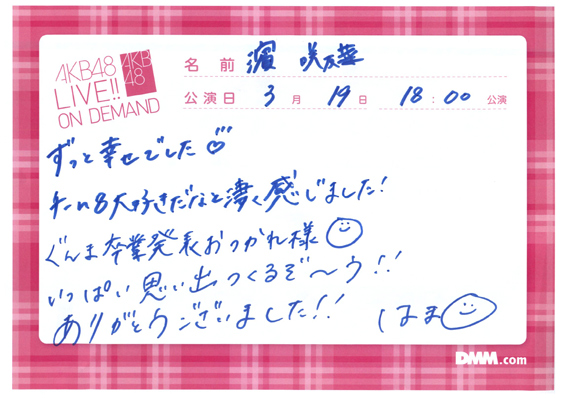 AKB48
LIVE!!
ON DEMAND
AKB
48
名前 濵 咲友菜
公演日 3月 19日 18:00 公演
ずっと幸せでした♡
チーム8大好きだなと凄く感じました!
ぐんま卒業発表おつかれ様☺
いっぱい思い出つくるぞ〜う!!
ありがとうございました!! はま☺
DMM.com